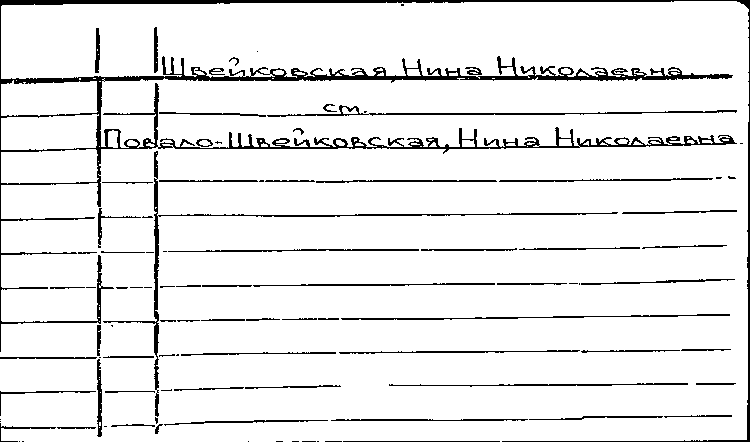 Швейковская, Нина Николаевна.
см.
Повало-Швейковская, Нина Николаевна.